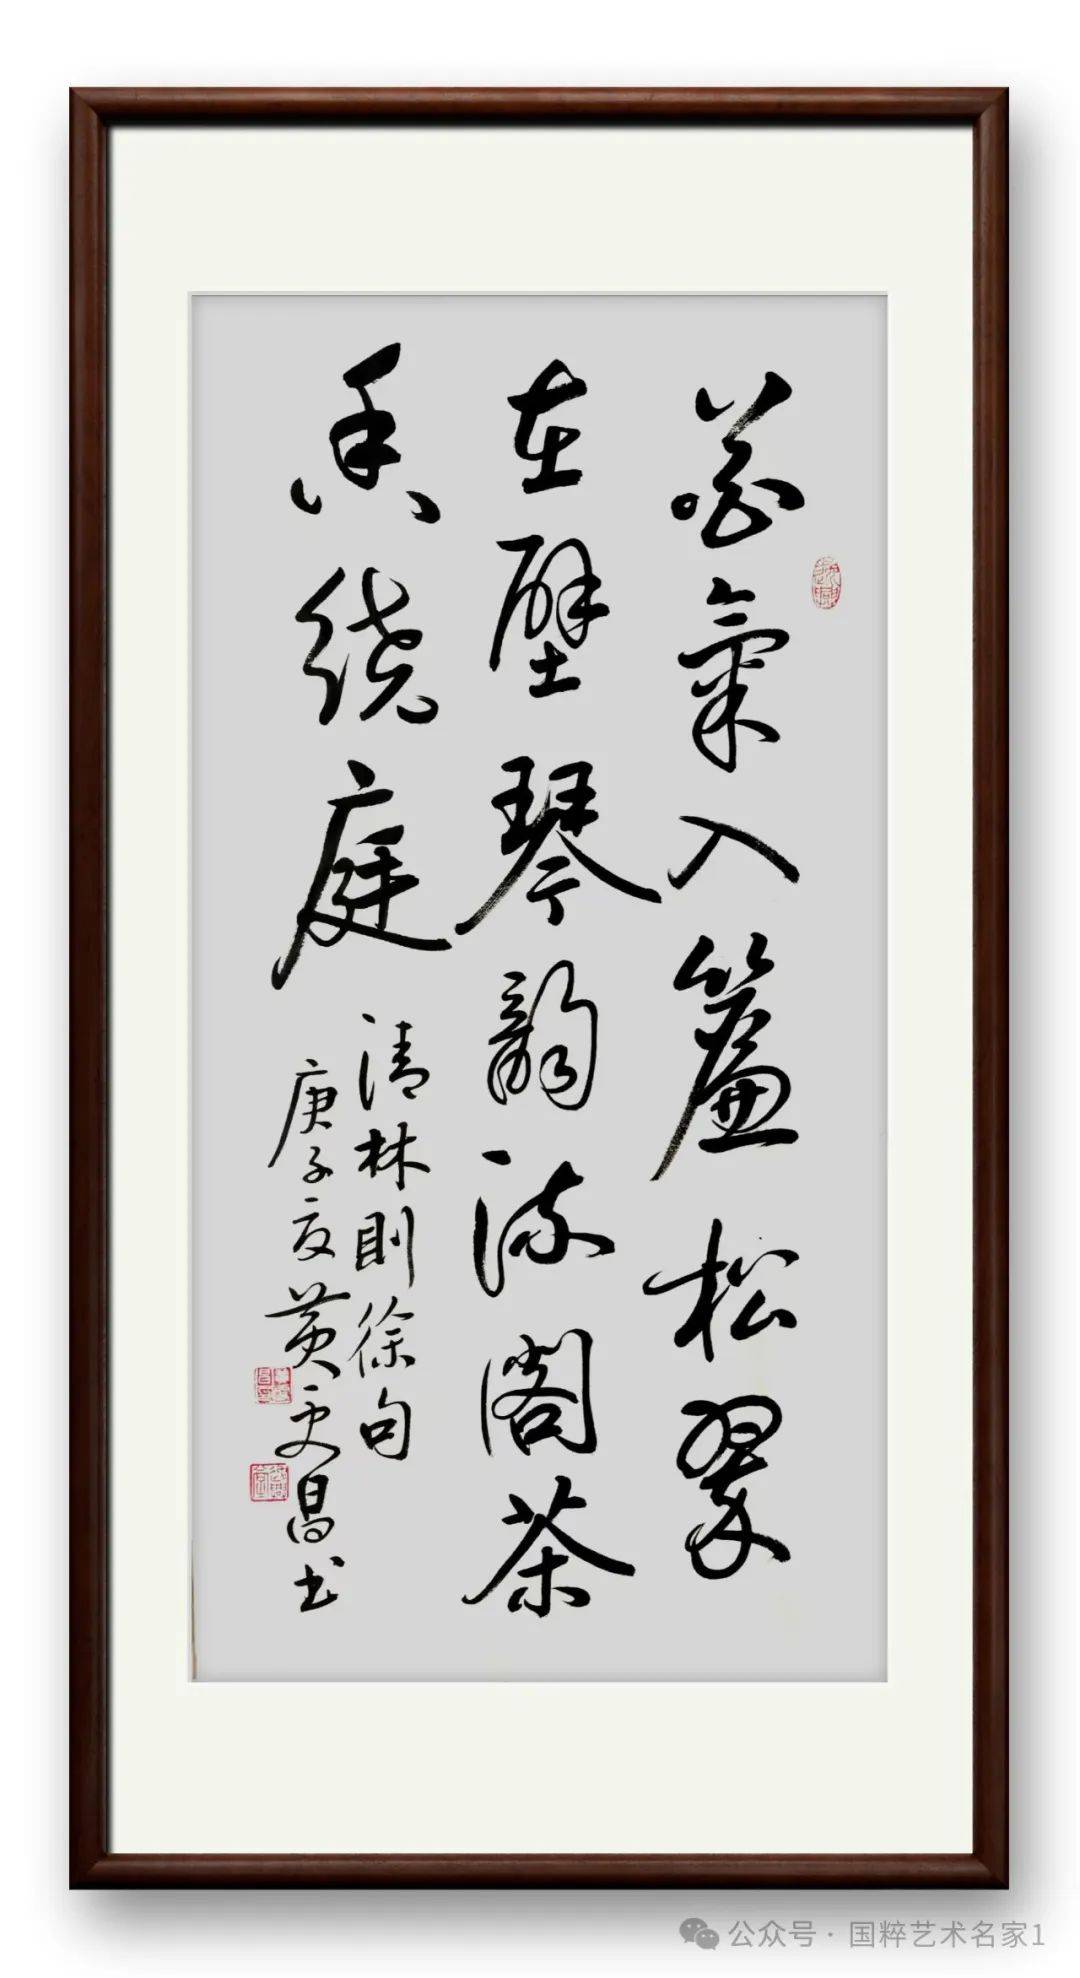 氣入簾松翠
在壁琴韻流閣茶
香繞庭
清林則徐句
庚子夏黃更昌书
公众号·国粹艺术名家1